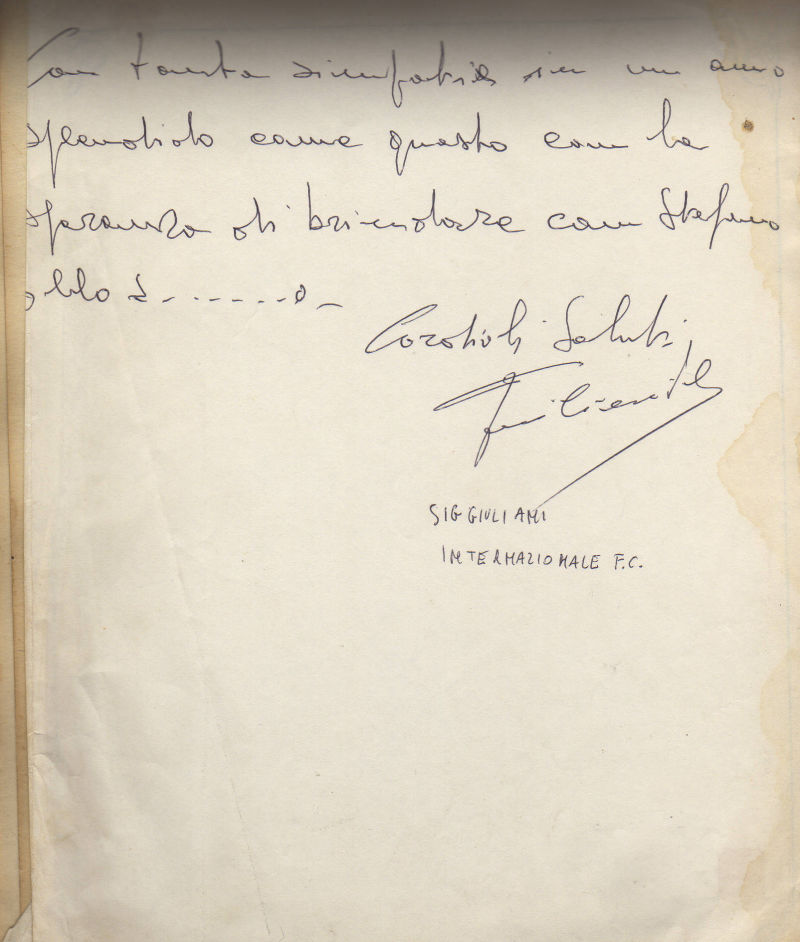 Con tanta simpatia in un anno
splendido come questo con la
speranza di brindare con Stefano
allo s.......o_
Cordiali Saluti,
SIG GIULIANI
INTERNAZIONALE F.C.